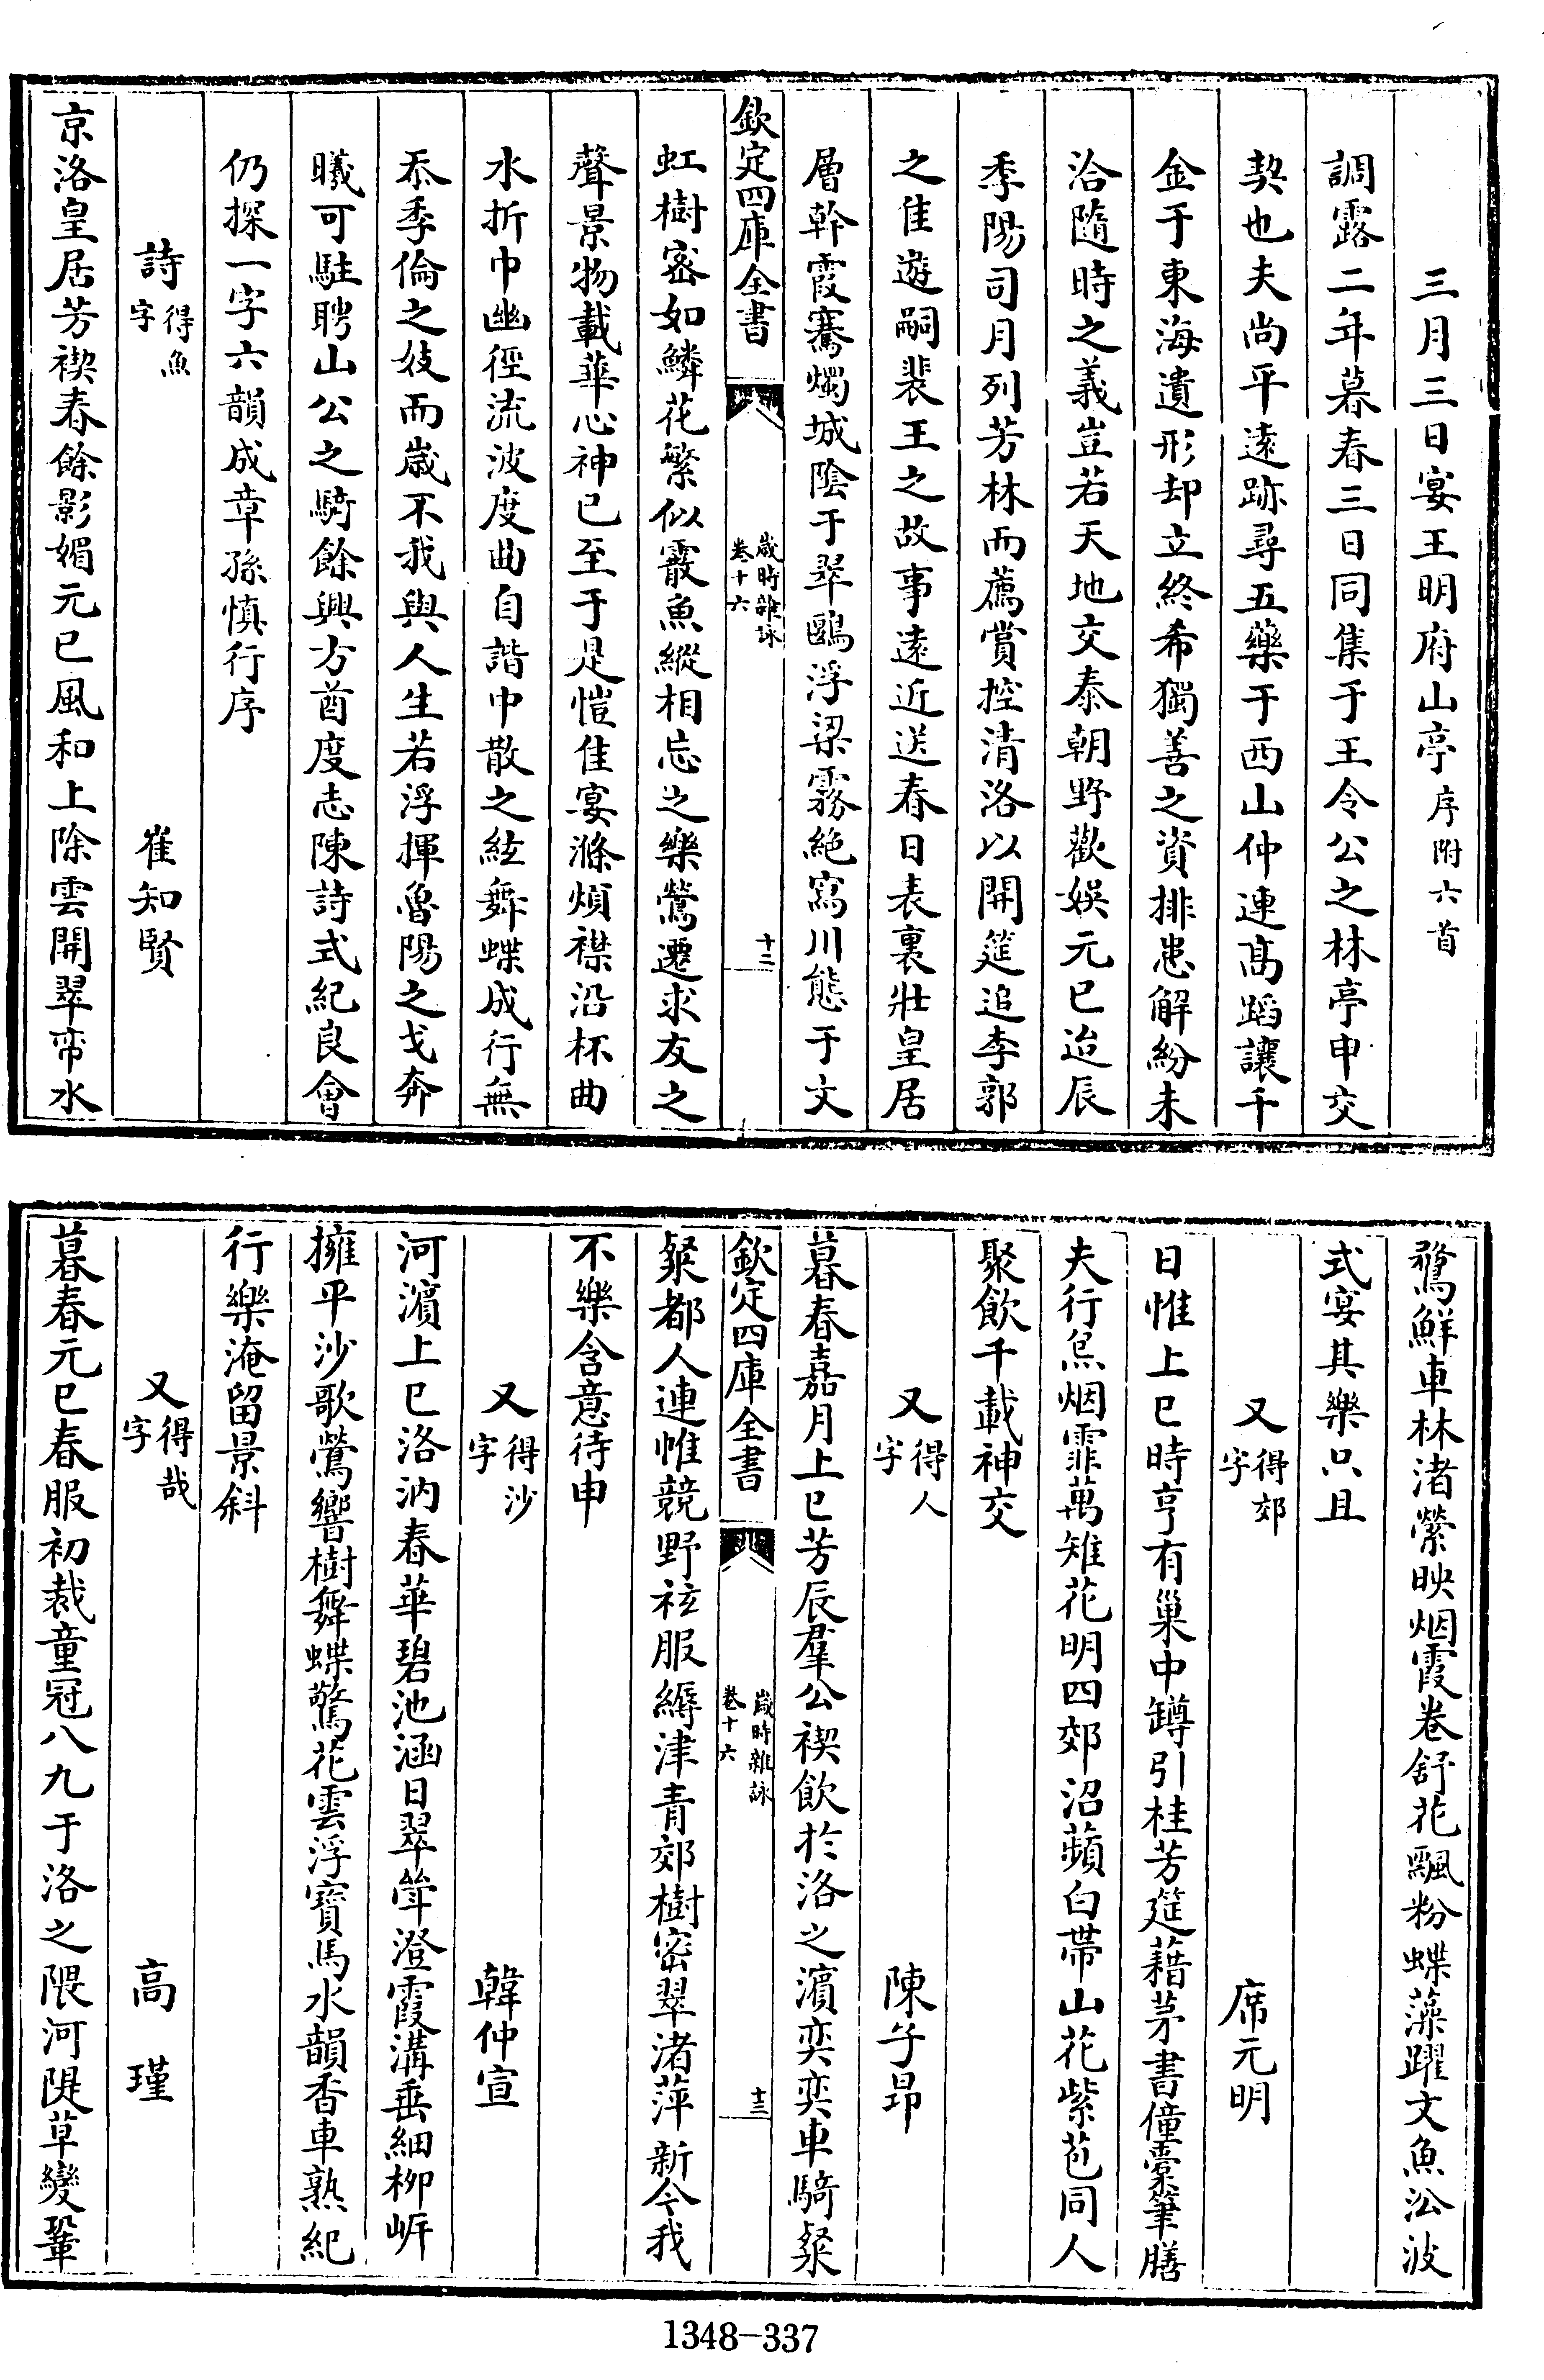 三月三日宴王明府山亭序附六首
調露二年暮春三日同集于王令公之林亭申交
契也夫尚平遠跡尋五藥于西山仲連髙蹈讓千
金于東海遺形却立終希獨善之資排患解紛未
洽隨時之義豈若天地交泰朝野歡娛元巳迨辰
季陽司月列芳林而薦賞控清洛以開筵追李郭
之佳遊嗣裴王之故事遠近送春日表裏壯皇居
層幹霞騫燭城陰于翠鷗浮梁霧絶寫川態于文
欽定四庫全書
歳時雜詠
卷十六
十二
虹樹宻如鱗花繁似霰魚縱相忘之樂鶯遷求友之
聲景物載華心神已至于是愷佳宴滌煩襟沿杯曲
水折巾幽徑流波度曲自諧中散之絃舞蝶成行無
忝季倫之妓而歳不我與人生若浮揮魯陽之戈奔
曦可駐聘山公之騎餘興方酋度志陳詩式紀良會
仍探一字六韻成章孫慎行序
詩得魚字 崔知賢
京洛皇居芳禊春餘影媚元巳風和上除雲開翠帟水
鶩鮮車林渚縈映烟霞卷舒花飄粉蝶藻躍文魚沿波
式宴其樂只且
又得郊字 席元明
日惟上巳時亨有巢中罇引桂芳筵藉茅書僮櫜筆膳
夫行炰烟霏萬雉花明四郊沼蘋白帶山花紫苞同人
聚飲千載神交
又得人字 陳子昻
暮春嘉月上巳芳辰羣公禊飲於洛之濱奕奕車騎粲
欽定四庫全書
歳時雜詠
卷十六
十三
粲都人連帷競野祛服縟津青郊樹密翠渚萍新今我
不樂含意待申
又得沙字 韓仲宣
河濱上巳洛汭春華碧池涵日翠斝澄霞溝垂細柳㟁
擁平沙歌鶯響樹舞蝶驚花雲浮寳馬水韻香車熟紀
行樂淹留景斜
又得哉字 高瑾
暮春元巳春服初裁童冠八九于洛之隈河隄草變鞏
1348-337